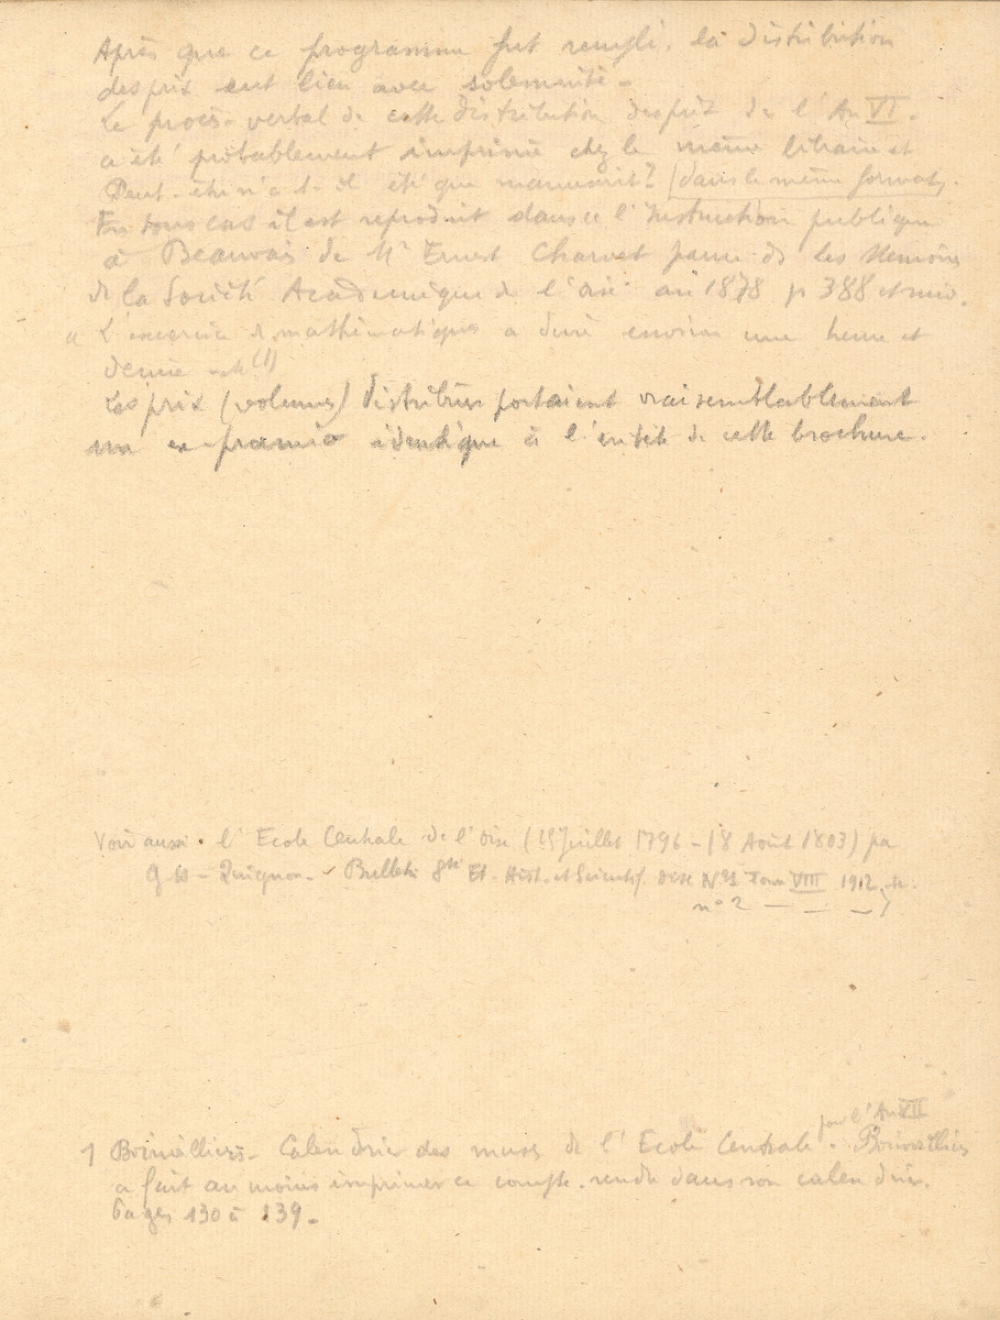 Après que ce programme fut rempli, la distribution
des prix eut lieu avec solemnité -
Le procès-verbal de cette distribution des prix de l'An VI.
a été probablement imprimé chez le même libraire et
Peut-être n'a-t-il été que manuscrit? (dans le même format).
En tous cas il est reproduit dans l'Instruction publique
à Beauvais de Mr Ernest Charvet parue ds les Mémoires
de la Société Académique de l'Oise an 1878 p 388 et suiv.
" L'exercice de mathématiques a duré environ une heure et
demie (1)
Les prix (volumes) distribués portaient vraisemblablement
un ex-praemio identique à l'entête de cette brochure.
Voir aussi l'Ecole Centrale de l'Oise (15 Juillet 1796 - 18 Août 1803) par
Quignon - Bulletin Sté Et. Hist. et Scientif. Oise No 1 Tome VIII 1912
no 2 — — —)
pour l'An VII
1 Boinvilliers - Calendrier des muses de l'Ecole Centrale. Boinvilliers
a fait au moins imprimer ce compte-rendu dans son calendrier.
Pages 130 à 139 -